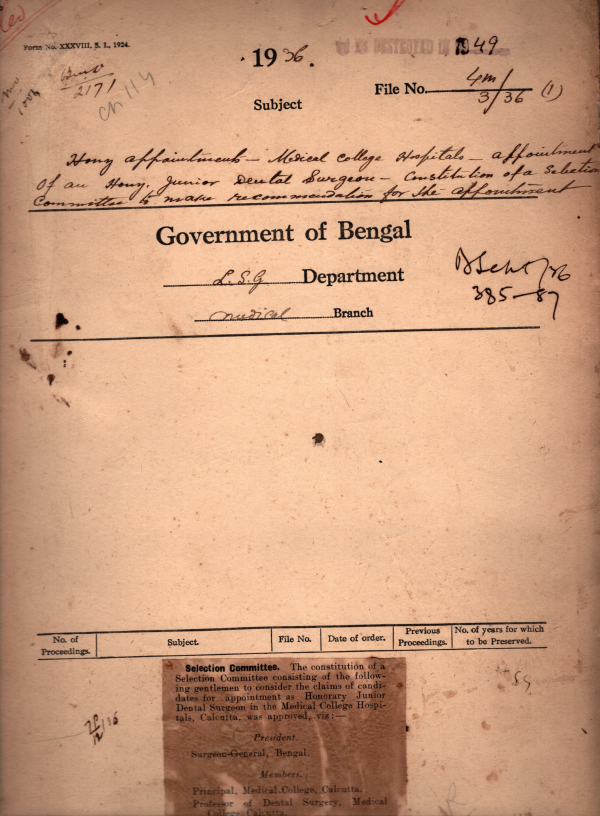 Form No. XXXVIII, S. I., 1924.
TO BE DESTROYED IN 1949
1936.
2171
File No. 4M/3/36 (1)
Subject
Hony appointments – Medical College Hospitals – appointment
of an Hony. Junior Dental Surgeon – Constitution of a Selection
Committee to make recommendation for the appointment
Government of Bengal
L.S.G Department
Medical Branch
385–87
No. of Proceedings.
Subject.
File No.
Date of order.
Previous Proceedings.
No. of years for which to be Preserved.
Selection Committee. The constitution of a
Selection Committee consisting of the follow-
ing gentlemen to consider the claims of candi-
dates for appointment as Honorary Junior
Dental Surgeon in the Medical College Hospi-
tals, Calcutta, was approved, viz:—
President.
Surgeon-General, Bengal.
Members.
Principal, Medical College, Calcutta.
Professor of Dental Surgery, Medical
College, Calcutta.